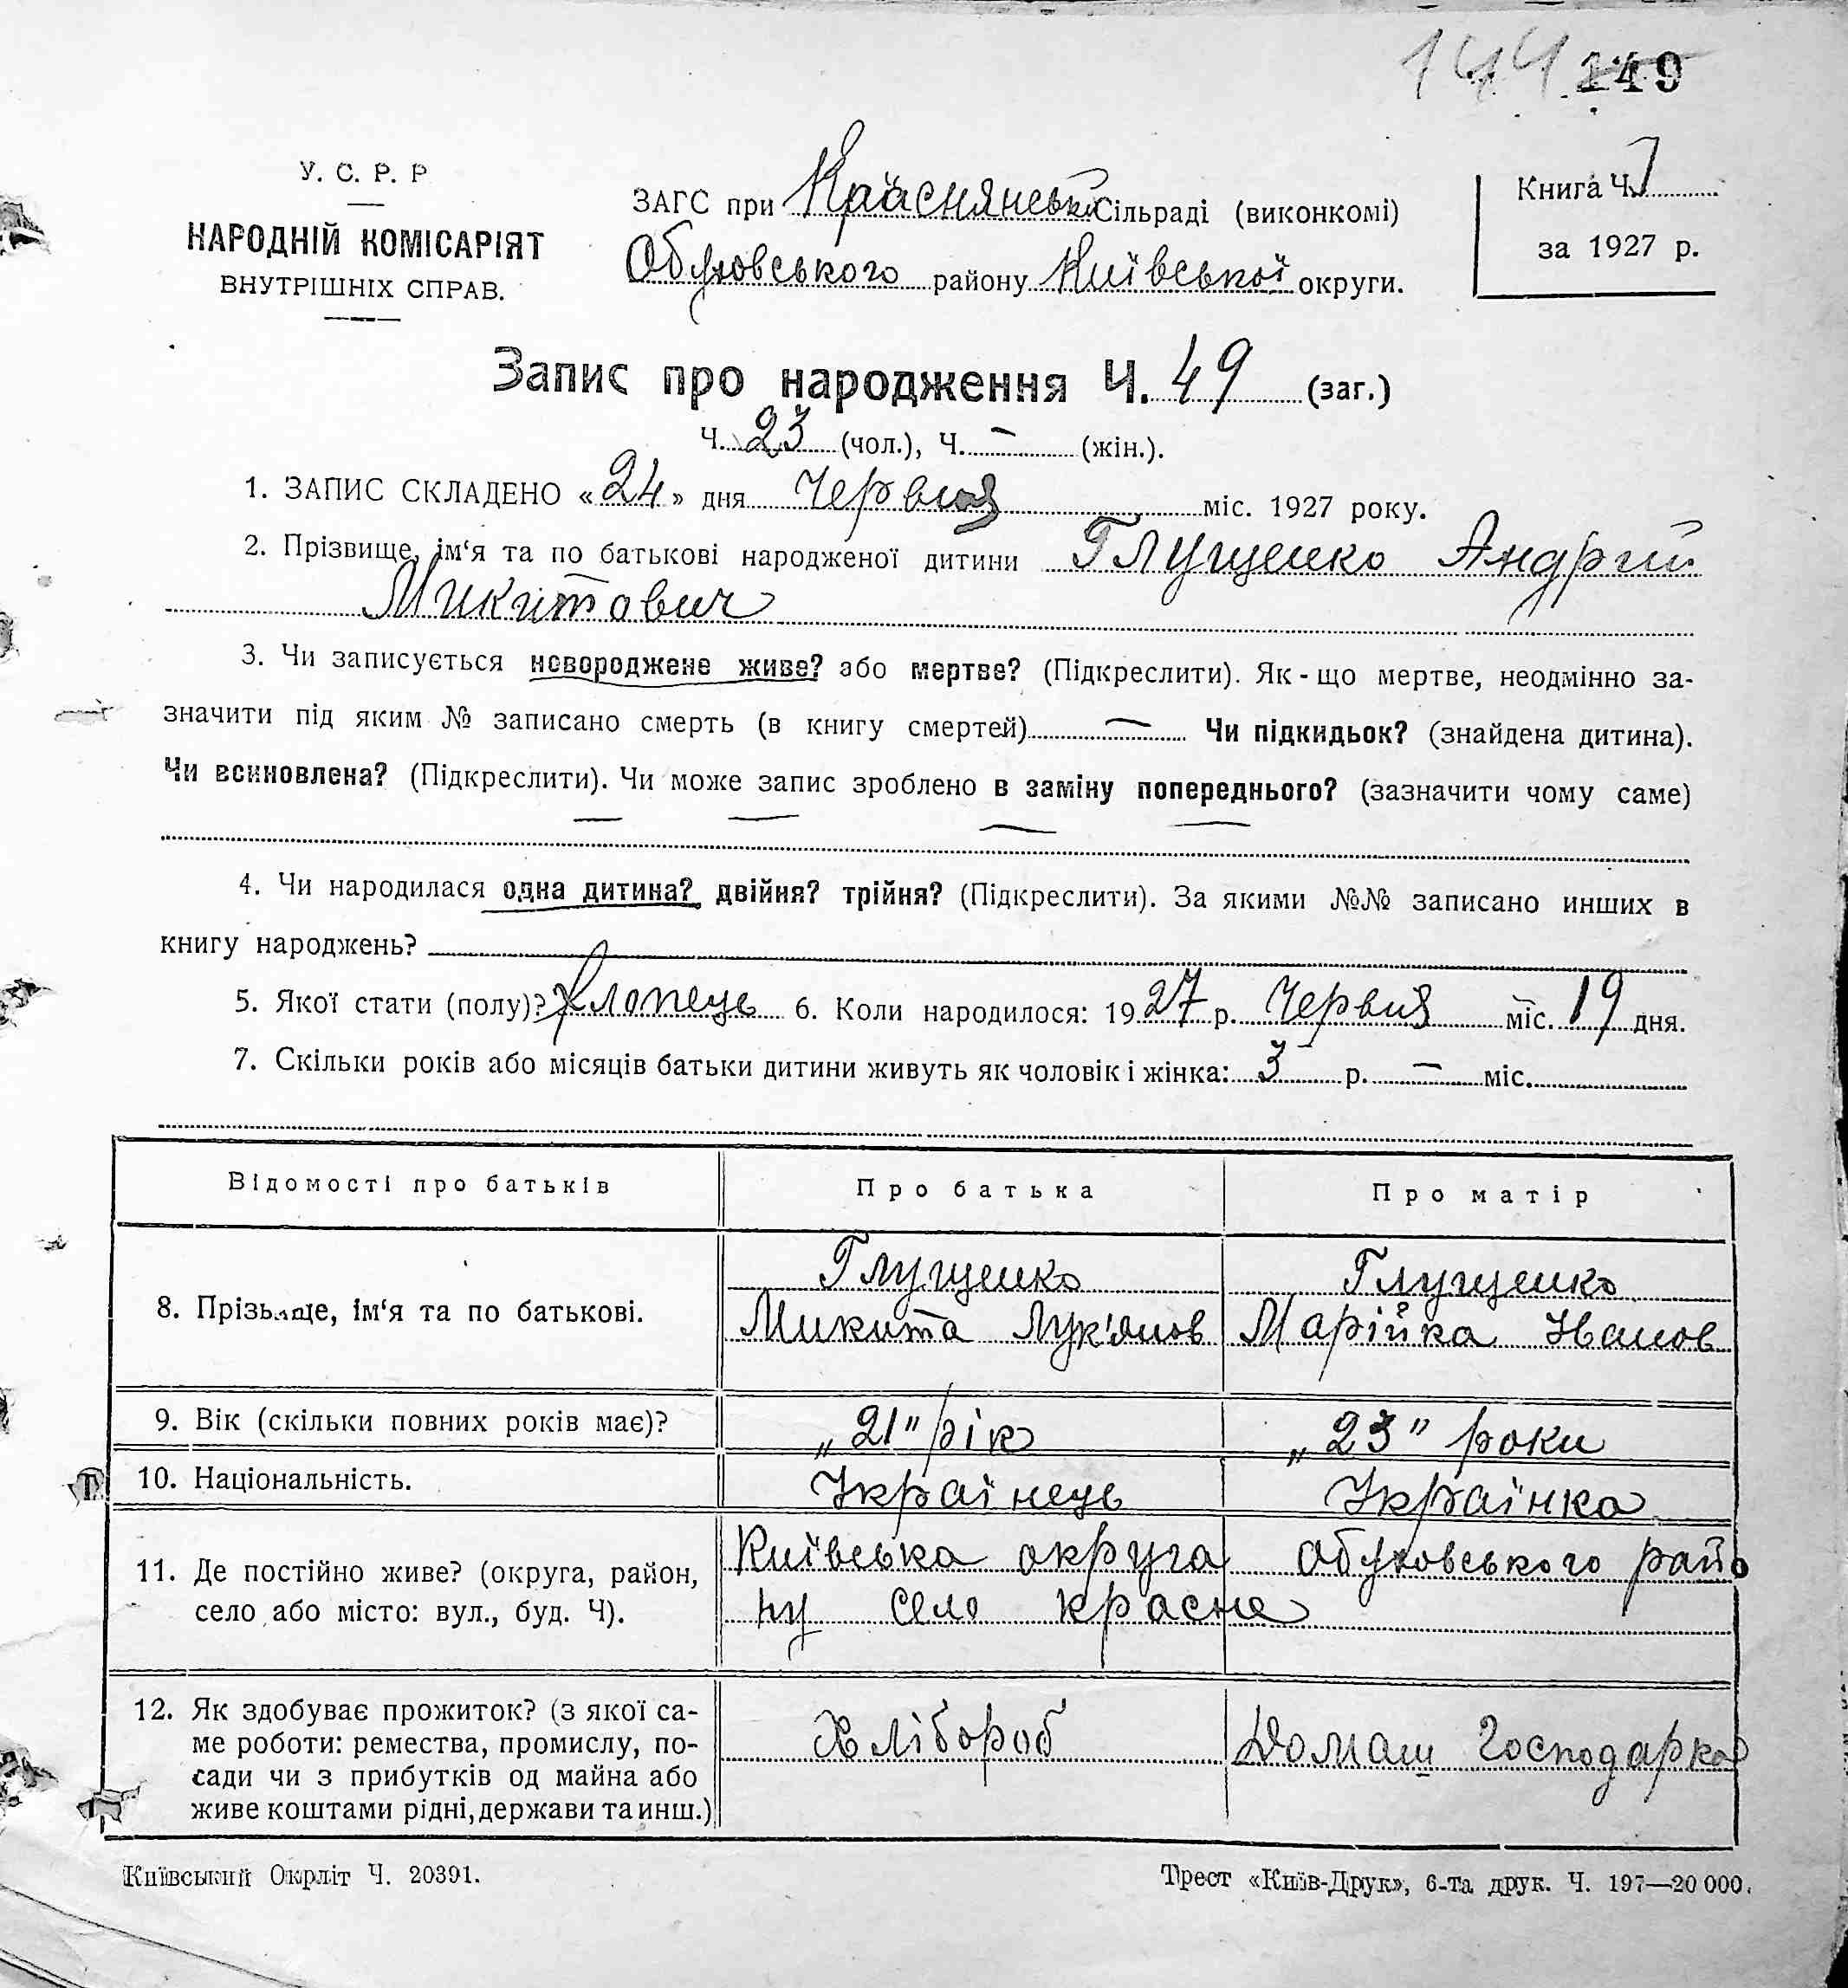 144 149
У. С. Р. Р
НАРОДНІЙ КОМІСАРІЯТ
ВНУТРІШНІХ СПРАВ.
ЗАГС при Краснянській Сільраді (виконкомі)
Обуховського району Київської округи.
Книга Ч. 1
за 1927 р.
Запис про народження Ч. 49 (заг.)
Ч. 23 (чол.), Ч. — (жін.).
1. ЗАПИС СКЛАДЕНО «24» дня Червня міс. 1927 року.
2. Прізвище, ім‘я та по батькові народженої дитини Глущенко Андрій
Микитович
3. Чи записується новороджене живе? або мертве? (Підкреслити). Як - що мертве, неодмінно за-
значити під яким № записано смерть (в книгу смертей) — Чи підкидьок? (знайдена дитина).
Чи всиновлена? (Підкреслити). Чи може запис зроблено в заміну попереднього? (зазначити чому саме)
— — — —
4. Чи народилася одна дитина? двійня? трійня? (Підкреслити). За якими №№ записано инших в
книгу народжень?
5. Якої стати (полу)? Хлопець 6. Коли народилося: 1927 р. Червня міс. 19 дня.
7. Скільки років або місяців батьки дитини живуть як чоловік і жінка: 3 р. — міс.
Відомості про батьків Про батька Про матір
8. Прізвище, ім‘я та по батькові. Глущенко Глущенко
Микита Лук'янов Марійка Іванов
9. Вік (скільки повних років має)? „21" рік „23" роки
10. Національність. Украінець Украінка
11. Де постійно живе? (округа, район, Київська округа Обуховського райо
село або місто: вул., буд. Ч). ну село красне
12. Як здобуває прожиток? (з якої са-
ме роботи: ремества, промислу, по- Хлібороб Домаш Господарка
сади чи з прибутків од майна або
живе коштами рідні, держави та инш.)
Київський Окрліт Ч. 20391. Трест «Київ-Друк», 6-та друк. Ч. 197—20 000.